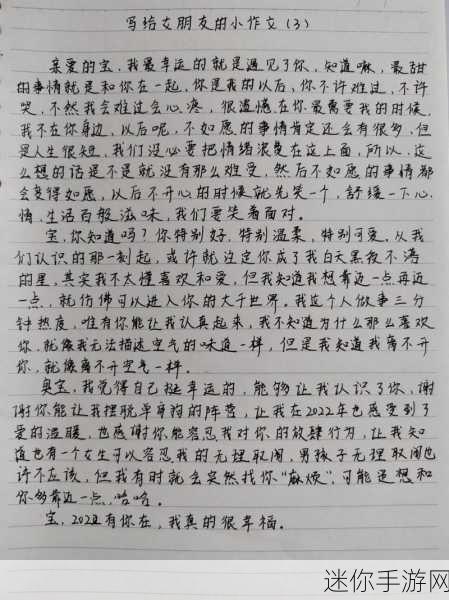 写给女朋友的小作文(3)
亲爱的宝,我最幸运的就是遇见了你,知道嘛,最甜
的事情就是和你在一起,你是我的以后,你不许难过,不许
哭,不然我会难过会心疼,很遗憾在你最需要我的时候,
我不在你身边,以后呢,不如愿的事情肯定还会有很多,但
是人生很短,我们没必要把情绪浪费在这上面,所以,这
么想的话是不是就没有那么难受,然后不如愿的事情都
会变得如愿,以后不开心的时候就先笑一个,舒缓一下心
情,生活百般滋味,我们要笑着面对。
宝,你知道吗?你特别好,特别温柔,特别可爱。从我
们认识的那一刻起,或许就注定你成了我白天黑夜不落
的星,其实我不太懂喜欢和爱,但我知道我想靠近一点再近
一点,就仿佛可以进入你的大千世界。我这个人做事三分
钟热度,唯有你能让我认真起来,我不知道为什么那么喜欢
你,就像我无法描述空气的味道一样,但是我知道我离不开
你,就像离不开空气一样。
臭宝,我觉得自己挺幸运的,能够让我认识了你,谢
谢你能让我摆脱单身狗的阵营,让我在2022年也感受到了
爱的温暖,也感谢你能容忍我对你的放肆行为,让我知
道也有一个女生可以容忍我的无理取闹,男孩子无理取闹也
许不应该,但我有时就会突然找你“麻烦”,可能是想和
你多靠近一点,哈哈。
宝,2022有你在,我真的很幸福。
迷你手游网